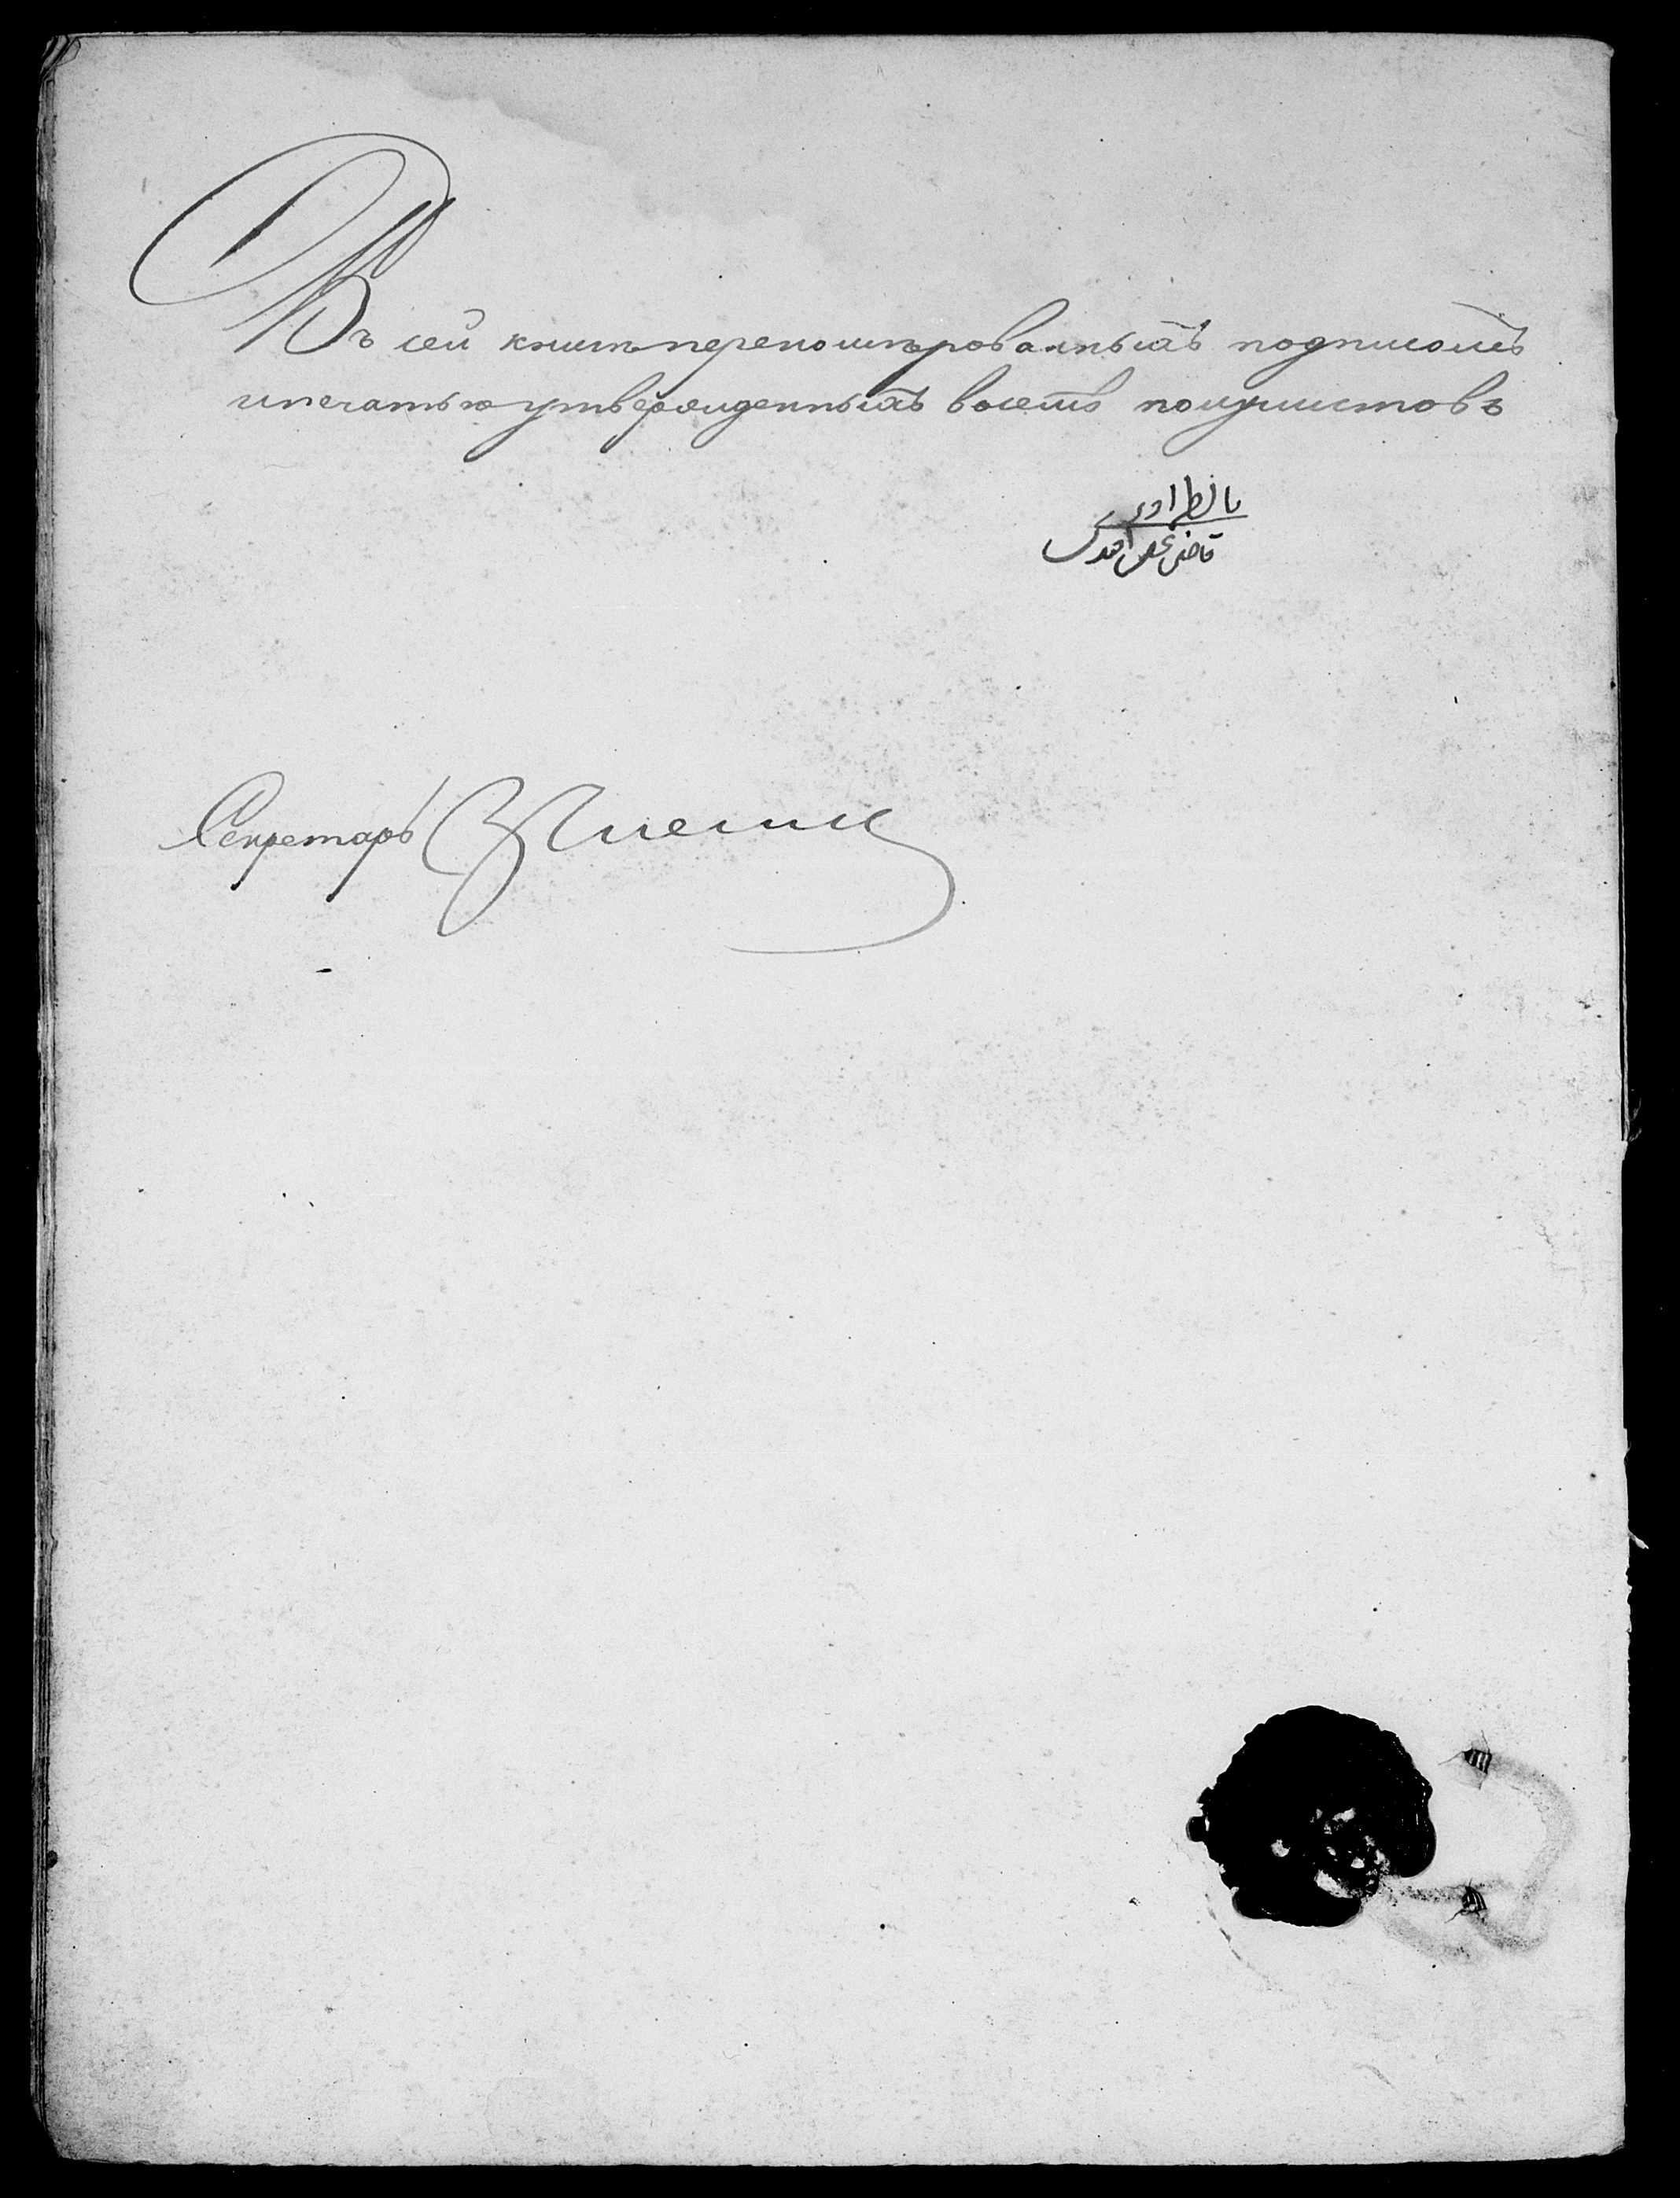 Въ сей книгѣ перенумѣрованныхъ подписомъ
и печатью утвержденныхъ восемь полулистовъ
قاضی
Секретарь